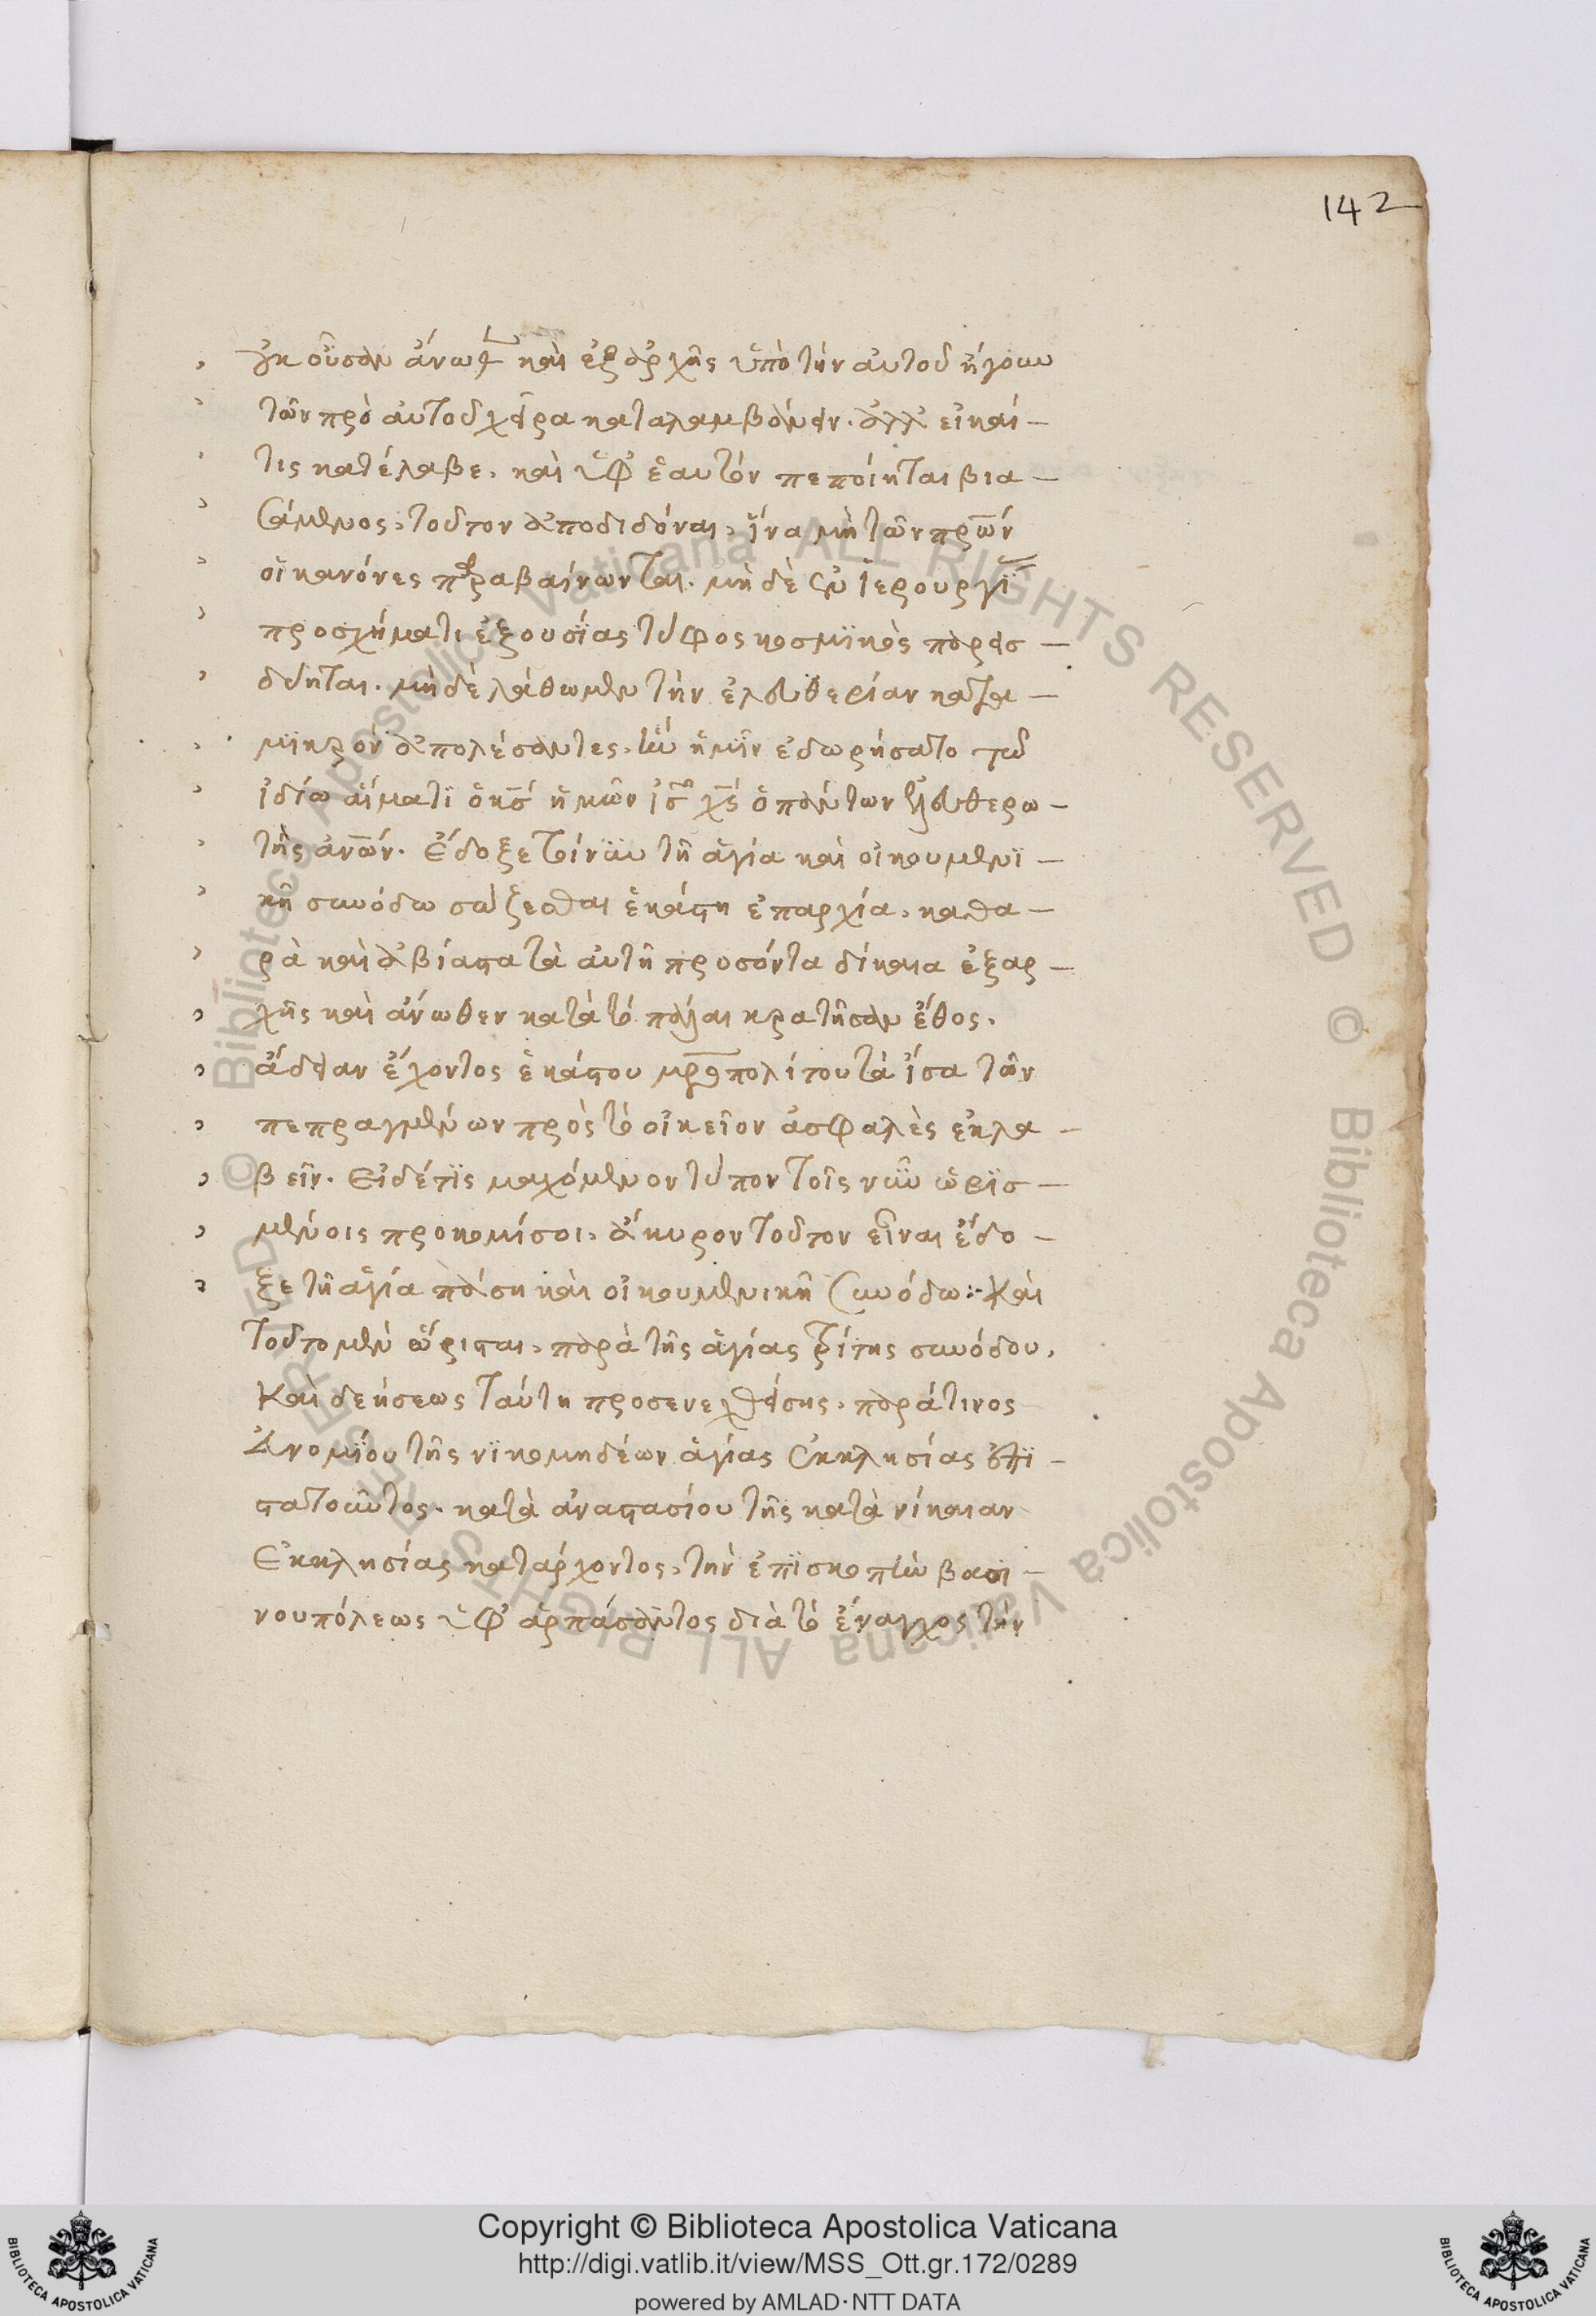 142
οὐκ οὖσαν ἄνωθ καὶ ἐξ ἀρχῆς ὑπὸ τὴν αὐτοῦ ἤγουν
τῶν πρὸ αὐτοῦ χεῖρα καταλαμβάνειν. ἀλλ' εἰ καί -
τις κατέλαβε, καὶ ὑφ' ἑαυτὸν πεποίηται βια -
σάμενος, τοῦτον ἀποδιδόναι, ἵνα μὴ τῶν πρων
οἱ κανόνες παραβαίνωνται. μὴ δὲ ἐν ἱερουργίας
προσχήματι ἐξουσίας τύφος κοσμϊκὸς παρεισ -
δύηται. μὴ δὲ λάθωμεν τὴν ἐλευθερίαν κατὰ -
μϊκρὸν ἀπολέσαντες, ἣν ἡμῖν ἐδωρήσατο τῶ
ἰδίω αἵματϊ ὁ κσ ἡμῶν ις χς ὁ πάντων ἐλευθερω -
τὴς ανων. Ἔδοξε τοίνϋν τῆ ἁγία καὶ οἰκουμενϊ -
κῆ συνόδω σώζεσθαι ἑκάστη ἐπαρχία, καθα -
ρὰ καὶ ἀβίαστα τὰ αὐτῆ προσόντα δίκαια ἐξαρ -
χῆς καὶ ἄνωθεν κατὰ τὸ πάλαι κρατῆσαν ἔθος.
ἄδειαν ἔχοντος ἑκάστου μρπολίτου τὰ ἴσα τῶν
πεπραγμένων πρὸς τὸ οἰκεῖον ἀσφαλὲς ἐκλα -
βεῖν. Εἰ δέ τϊς μαχόμενον τύπον τοῖς νῦν ὡρϊσ -
μένοις προκομίσοι, ἄκυρον τοῦτον εἶναι ἔδο -
ξε τῆ ἁγία πάση καὶ οἰκουμενικῆ συνόδω :- Καὶ
τοῦτο μὲν ὥρισται, παρὰ τῆς ἁγίας τρίτης συνόδου,
Καὶ δεήσεως ταύτη προσενεχθείσης, παρά τινος
Ἀνομίου τῆς νϊκομηδέων ἁγίας ἐκκλησίας ἐπϊ -
στατοῦντος. κατὰ ἀναστασίου τῆς κατὰ νίκαιαν
Ἐκκλησίας κατάρχοντος, τὴν ἐπϊσκοπὴν βασι -
νουπόλεως ὑφ' ἁρπάσαντος διὰ τὸ ἔναγχος τὴν
© Biblioteca Apostolica Vaticana ALL RIGHTS RESERVED © Biblioteca Apostolica Vaticana ALL RIGHTS RESERVED
Copyright © Biblioteca Apostolica Vaticana
http://digi.vatlib.it/view/MSS_Ott.gr.172/0289
powered by AMLAD·NTT DATA
BIBLIOTECA APOSTOLICA VATICANA
BIBLIOTECA APOSTOLICA VATICANA